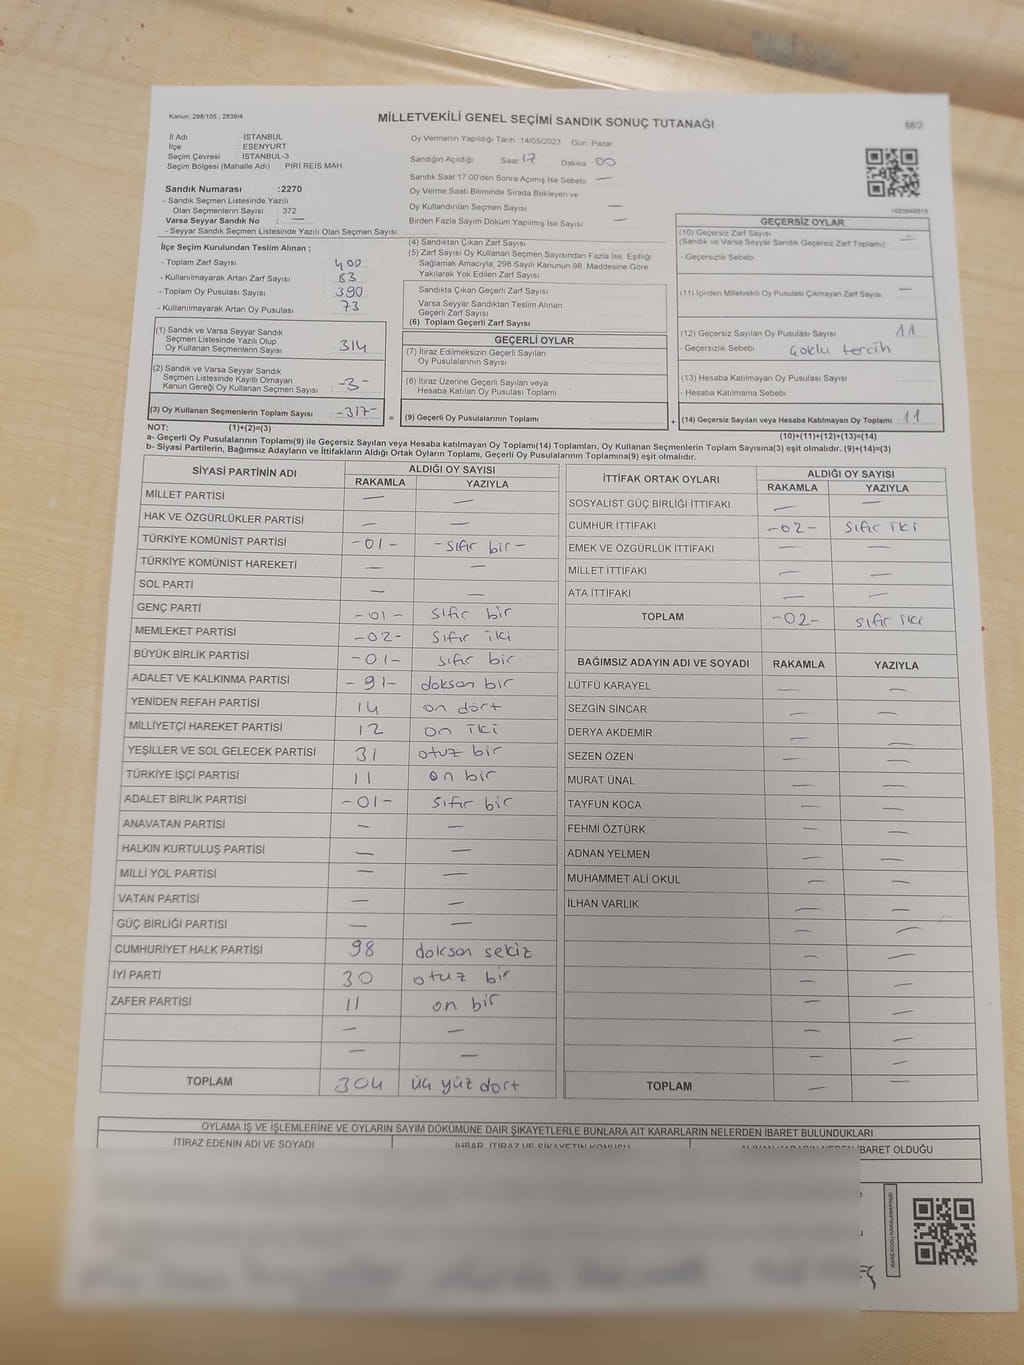 Kanun; 298/105 , 2839/4
MİLLETVEKİLİ GENEL SEÇİMİ SANDIK SONUÇ TUTANAĞI
Mİ/2
İl Adı : İSTANBUL
İlçe : ESENYURT
Seçim Çevresi : İSTANBUL-3
Seçim Bölgesi (Mahalle Adı) : PİRİ REİS MAH.
Sandık Numarası :2270
- Sandık Seçmen Listesinde Yazılı
Olan Seçmenlerin Sayısı : 372
Varsa Seyyar Sandık No : —
- Seyyar Sandık Seçmen Listesinde Yazılı Olan Seçmen Sayısı
Oy Vermenin Yapıldığı Tarih 14/05/2023 Gün Pazar
Sandığın Açıldığı Saat 17 Dakika 00
Sandık Saat 17.00'den Sonra Açılmış İse Sebebi —
Oy Verme Saati Bitiminde Sırada Bekleyen ve
Oy Kullandırılan Seçmen Sayısı —
Birden Fazla Sayım Döküm Yapılmış İse Sayısı —
İlçe Seçim Kurulundan Teslim Alınan ;
- Toplam Zarf Sayısı : 400
- Kullanılmayarak Artan Zarf Sayısı : 83
- Toplam Oy Pusulası Sayısı : 390
- Kullanılmayarak Artan Oy Pusulası : 73
(1) Sandık ve Varsa Seyyar Sandık
Seçmen Listesinde Yazılı Olup
Oy Kullanan Seçmenlerin Sayısı : 314
(2) Sandık ve Varsa Seyyar Sandık
Seçmen Listesinde Kayıtlı Olmayan
Kanun Gereği Oy Kullanan Seçmen Sayısı : -3-
(3) Oy Kullanan Seçmenlerin Toplam Sayısı : -317-
(4) Sandıktan Çıkan Zarf Sayısı
(5) Zarf Sayısı Oy Kullanan Seçmen Sayısından Fazla İse, Eşitliği
Sağlamak Amacıyla, 298 Sayılı Kanunun 98. Maddesine Göre
Yakılarak Yok Edilen Zarf Sayısı
Sandıkta Çıkan Geçerli Zarf Sayısı
Varsa Seyyar Sandıktan Teslim Alınan
Geçerli Zarf Sayısı
(6) Toplam Geçerli Zarf Sayısı
GEÇERLİ OYLAR
(7) İtiraz Edilmeksizin Geçerli Sayılan
Oy Pusulalarının Sayısı
(8) İtiraz Üzerine Geçerli Sayılan veya
Hesaba Katılan Oy Pusulası Toplamı
= (9) Geçerli Oy Pusulalarının Toplamı
GEÇERSİZ OYLAR
(10) Geçersiz Zarf Sayısı —
(Sandık ve Varsa Seyyar Sandık Geçersiz Zarf Toplamı)
- Geçersizlik Sebebi
(11) İçinden Milletvekili Oy Pusulası Çıkmayan Zarf Sayısı —
(12) Geçersiz Sayılan Oy Pusulası Sayısı : 11
- Geçersizlik Sebebi : çoklu tercih
(13) Hesaba Katılmayan Oy Pusulası Sayısı
- Hesaba Katılmama Sebebi
+ (14) Geçersiz Sayılan veya Hesaba Katılmayan Oy Toplamı : 11
NOT: (1)+(2)=(3)
(10)+(11)+(12)+(13)=(14)
a- Geçerli Oy Pusulalarının Toplamı(9) ile Geçersiz Sayılan veya Hesaba katılmayan Oy Toplamı(14) Toplamları, Oy Kullanan Seçmenlerin Toplam Sayısına(3) eşit olmalıdır. (9)+(14)=(3)
b- Siyasi Partilerin, Bağımsız Adayların ve İttifakların Aldığı Ortak Oyların Toplamı, Geçerli Oy Pusulalarının Toplamına(9) eşit olmalıdır.
SİYASİ PARTİNİN ADI ALDIĞI OY SAYISI
RAKAMLA YAZIYLA
MİLLET PARTİSİ — —
HAK VE ÖZGÜRLÜKLER PARTİSİ — —
TÜRKİYE KOMÜNİST PARTİSİ -01- -sıfır bir-
TÜRKİYE KOMÜNİST HAREKETİ — —
SOL PARTİ — —
GENÇ PARTİ -01- sıfır bir
MEMLEKET PARTİSİ -02- sıfır iki
BÜYÜK BİRLİK PARTİSİ -01- sıfır bir
ADALET VE KALKINMA PARTİSİ -91- doksan bir
YENİDEN REFAH PARTİSİ 14 on dört
MİLLİYETÇİ HAREKET PARTİSİ 12 on iki
YEŞİLLER VE SOL GELECEK PARTİSİ 31 otuz bir
TÜRKİYE İŞÇİ PARTİSİ 11 on bir
ADALET BİRLİK PARTİSİ -01- sıfır bir
ANAVATAN PARTİSİ — —
HALKIN KURTULUŞ PARTİSİ — —
MİLLİ YOL PARTİSİ — —
VATAN PARTİSİ — —
GÜÇ BİRLİĞİ PARTİSİ — —
CUMHURİYET HALK PARTİSİ 98 doksan sekiz
İYİ PARTİ 30 otuz bir
ZAFER PARTİSİ 11 on bir
— —
— —
TOPLAM 304 üç yüz dört
İTTİFAK ORTAK OYLARI ALDIĞI OY SAYISI
RAKAMLA YAZIYLA
SOSYALİST GÜÇ BİRLİĞİ İTTİFAKI — —
CUMHUR İTTİFAKI -02- sıfır iki
EMEK VE ÖZGÜRLÜK İTTİFAKI — —
MİLLET İTTİFAKI — —
ATA İTTİFAKI — —
TOPLAM -02- sıfır iki
BAĞIMSIZ ADAYIN ADI VE SOYADI RAKAMLA YAZIYLA
LÜTFÜ KARAYEL — —
SEZGİN SİNCAR — —
DERYA AKDEMİR — —
SEZEN ÖZEN — —
MURAT ÜNAL — —
TAYFUN KOCA — —
FEHMİ ÖZTÜRK — —
ADNAN YELMEN — —
MUHAMMET ALİ OKUL — —
İLHAN VARLIK — —
TOPLAM — —
OYLAMA İŞ VE İŞLEMLERİNE VE OYLARIN SAYIM DÖKÜMÜNE DAİR ŞİKAYETLERLE BUNLARA AİT KARARLARIN NELERDEN İBARET BULUNDUKLARI
İTİRAZ EDENİN ADI VE SOYADI İHBAR, İTİRAZ VE ŞİKAYETİN KONUSU İBARET OLDUĞU